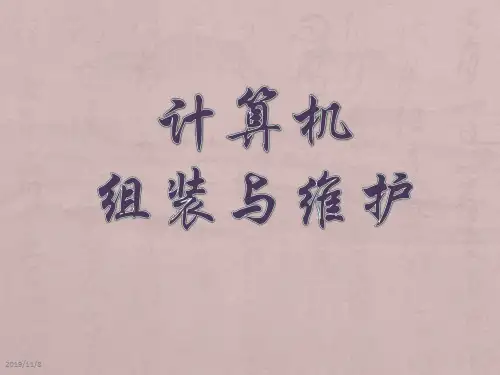 计算机
组装与维护
2019/11/8